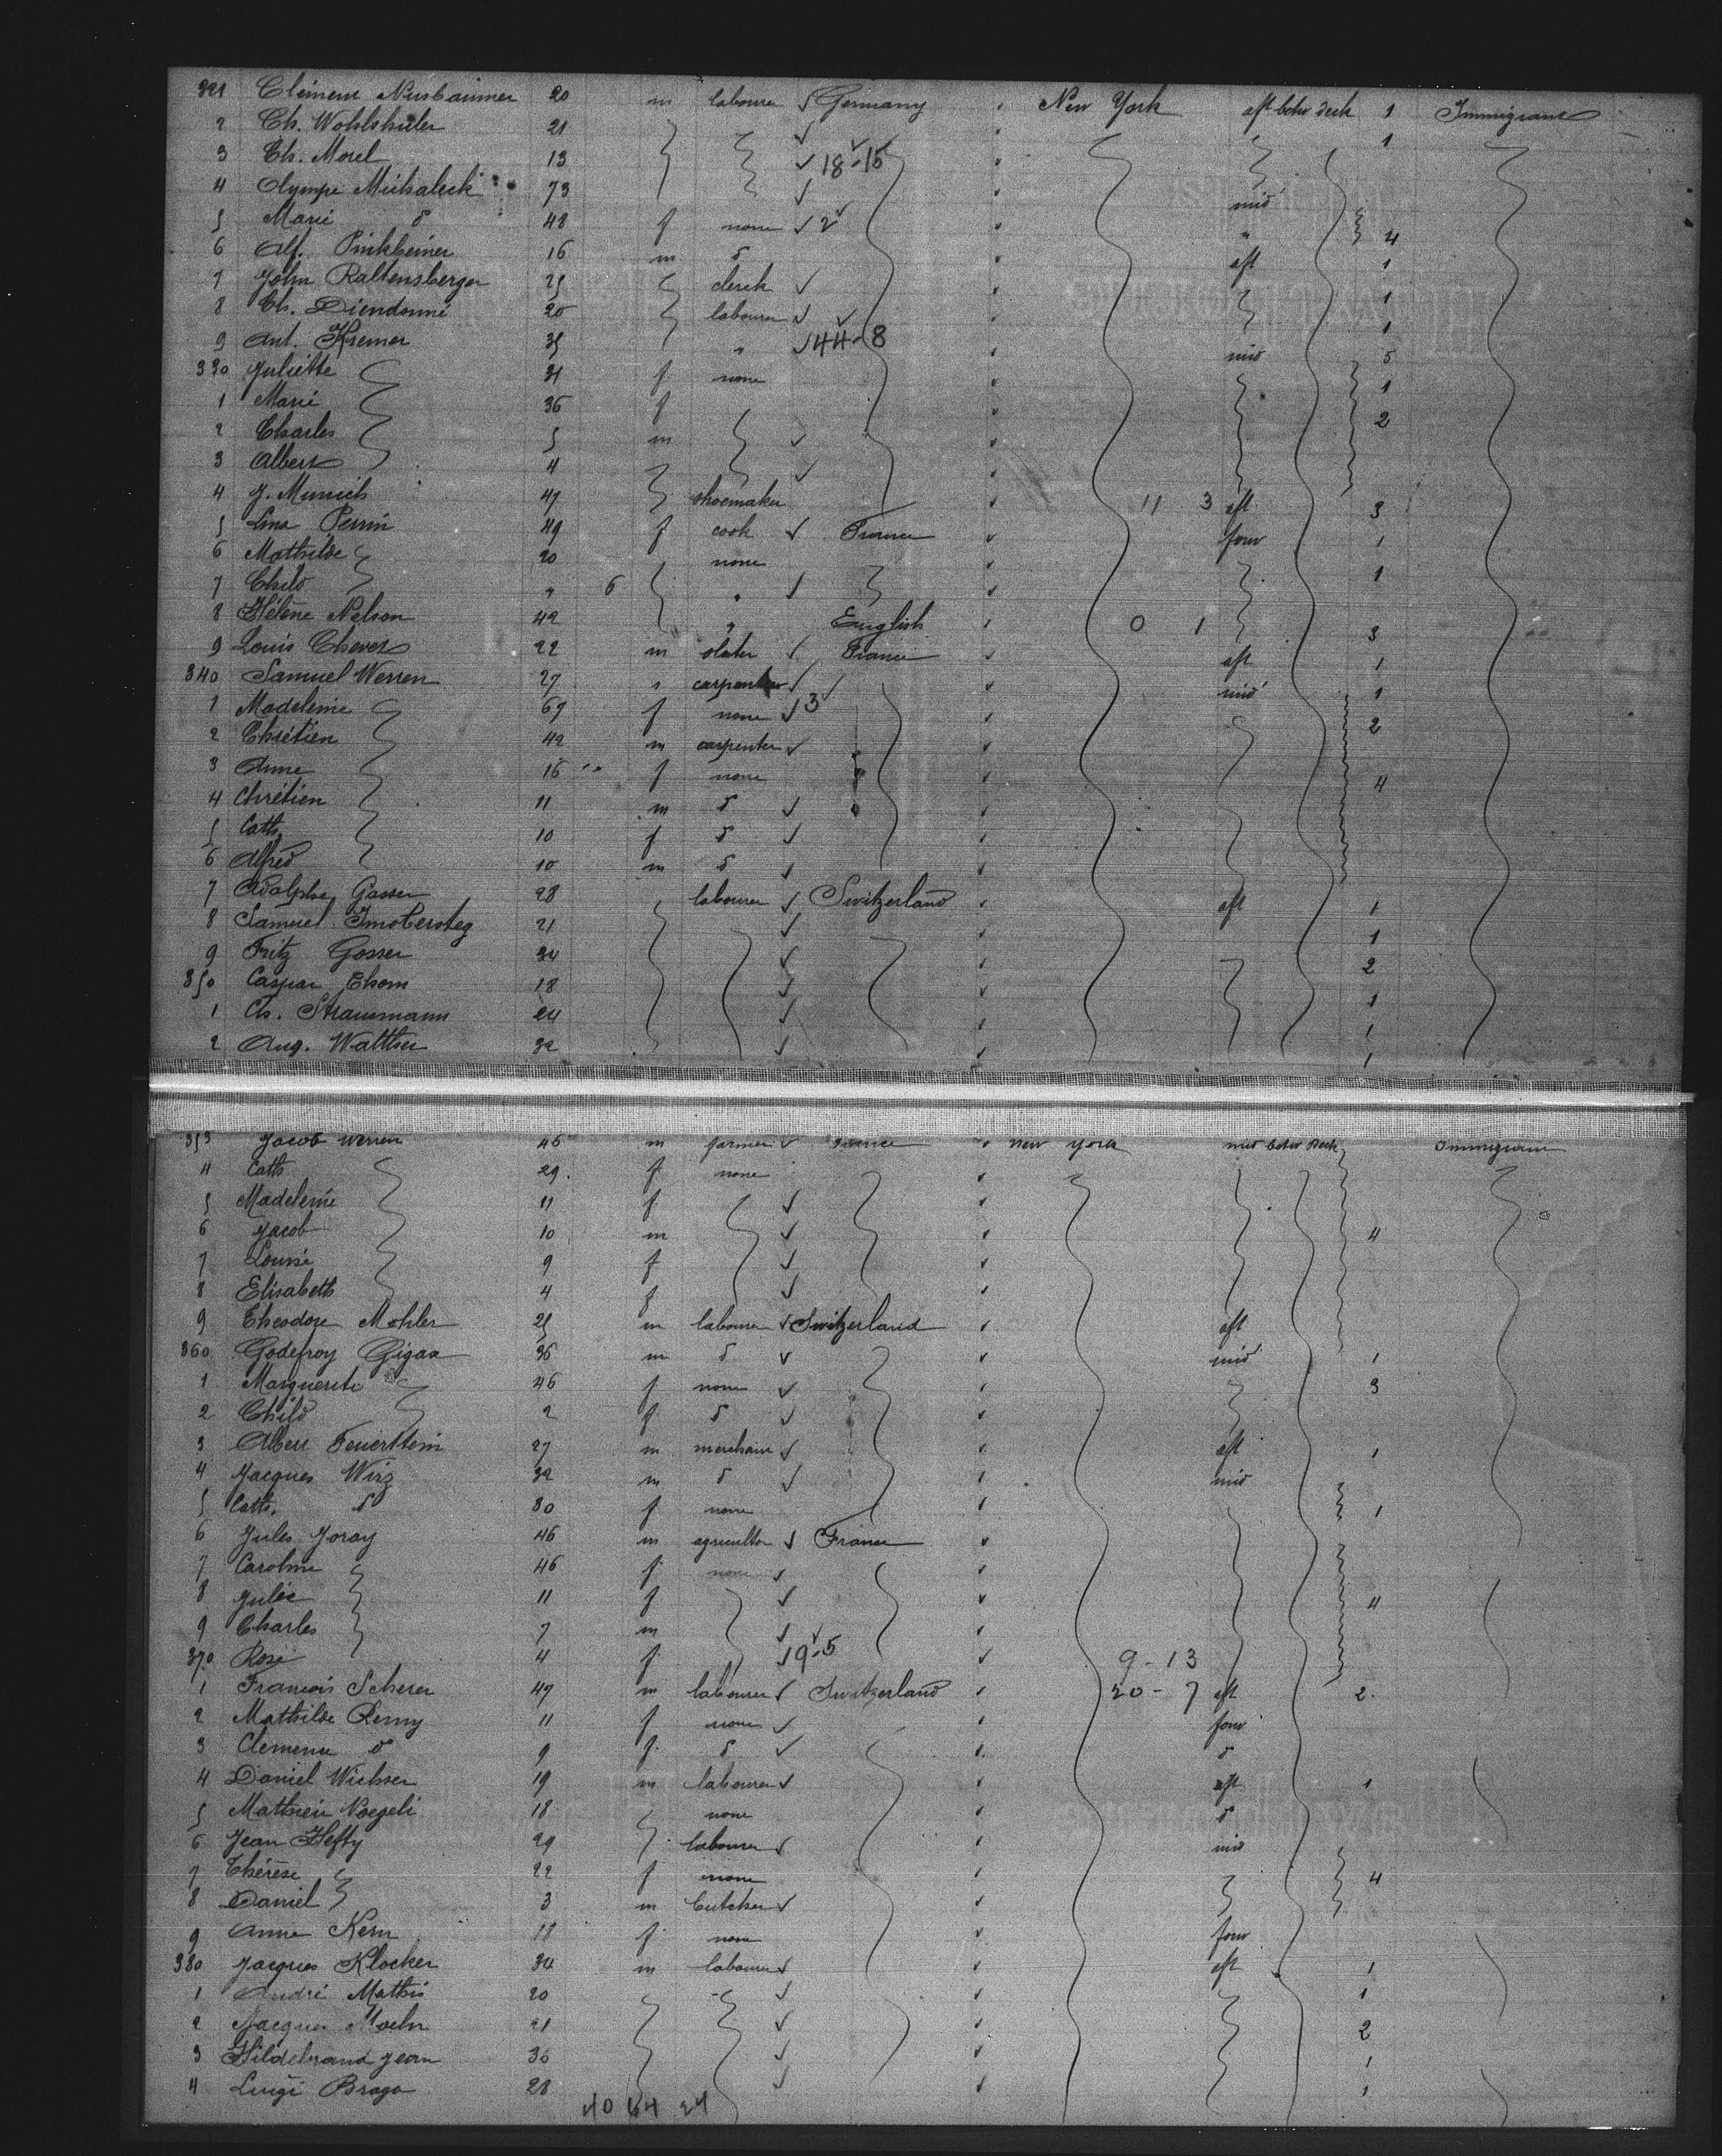 321 Clémens Nusbaumer 20 m labourer ✓ Germany New York aft betw deck 1 Immigrant
2 Ch. Wohlshuler 21 ✓ 1
3 Ch. Morel 13 ✓ 18-15
4 Olympe Michaleck 73 ✓ mid
5 Marie d 48 f none ✓ 2 " 4
6 Alf. Pinkheiner 16 m d aft 1
7 John Raltensberger 25 clerck ✓ 1
8 Ch. Diendonné 20 labourer ✓ 1
9 Ant. Kremer 35 " ✓ 44-8 mid 5
330 Juliette 31 f none 1
1 Marie 36 f 2
2 Charles 5 m ✓
3 Albert 4 ✓
4 J. Munich 47 shoemaker 11 3 aft 3
5 Lina Perrin 49 f cook ✓ France forw 1
6 Mathilde 20 none 1
7 Child " 6 " ✓
8 Hélène Nelson 42 " English 0 1 3
9 Louis Chever 22 m slater ✓ France aft 1
340 Samuel Werren 27 " carpenter ✓ mid 1
1 Madeleine 67 f none ✓ 3 2
2 Chrétien 42 m carpenter ✓
3 Anne 16 f none 4
4 Chrétien 11 m d ✓
5 Cath. 10 f d ✓
6 Alfred 10 m d ✓
7 Adolphe Gasser 28 labourer ✓ Switzerland aft 1
8 Samuel Imobersteg 21 ✓ 1
9 Fritz Gosser 34 ✓ 2
350 Caspar Thom 18 ✓ 1
1 Ch. Strausmann 24 ✓ 1
2 Aug. Walther 32 ✓ 1
353 Jacob Werren 46 m farmer ✓ France New York mid betw Deck Immigrant
4 Cath 29 f none
5 Madeleine 11 f ✓
6 Jacob 10 m ✓ 4
7 Louise 9 f ✓
8 Elisabeth 4 f ✓
9 Theodore Mohler 25 m labourer ✓ Switzerland aft
360 Godefroy Gigax 36 m d ✓ mid 1
1 Marguerite 46 f none ✓ 3
2 Child 2 f d ✓
3 Albert Feuerstein 27 m merchant ✓ aft 1
4 Jacques Wirz 32 m d ✓ mid
5 Cath. d 30 f none 1
6 Jules Joray 46 m agricultor ✓ France
7 Caroline 46 f none ✓
8 Julie 11 f ✓ 4
9 Charles 7 m ✓
370 Rose 4 f ✓ 9-5 9-13
1 François Scherer 47 m labourer ✓ Switzerland 20-7 aft 2
2 Mathilde Remy 11 f none ✓ forw
3 Clemence d 9 f d ✓ d
4 Daniel Wichser 19 m labourer ✓ aft 1
5 Mathieu Noegeli 18 none d
6 Jean Hefty 29 labourer ✓ mid
7 Thérèse 22 f none 4
8 Daniel 3 m butcher ✓
9 Anne Kern 18 f none forw
380 Jacques Klocker 34 m labourer ✓ aft 1
1 André Mathis 20 ✓ 1
2 Jacques 21 ✓ 2
3 Hildebrand Jean 36 ✓ 1
4 Luigi Braga 28 ✓ 1
40 64 24